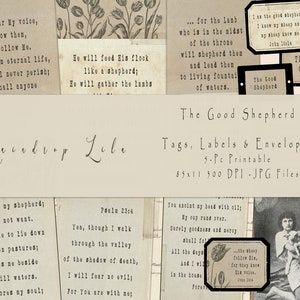 My voice,
them,
Follow Me.
eternal life,
never perish;
shall anyone
He will feed His flock
like a shepherd;
He will gather the lambs
... for the Lamb
who is in the midst
of the throne
will shepherd them
and lead them
to living fountains
of waters.
I am the good shepherd
my sheep
John 10:14
The Good
Shepherd
Raindrop Lila
The Good Shepherd
Tags, Labels & Envelop
5-Pc Printable
85x11 300 DPI -JPG Files
my shepherd;
not want.
me to lie down
pastures;
me beside
waters.
my soul;
Psalm 23:4
Yea, though I walk
through the valley
of the shadow of death,
I will fear no evil;
For You are with me
You anoint my head with oil;
My cup runs over.
Surely goodness and mercy
shall follow me
All the days
And I will
in the House
Forever
...the sheep
follow Him,
for they know
His voice.
John 10:4